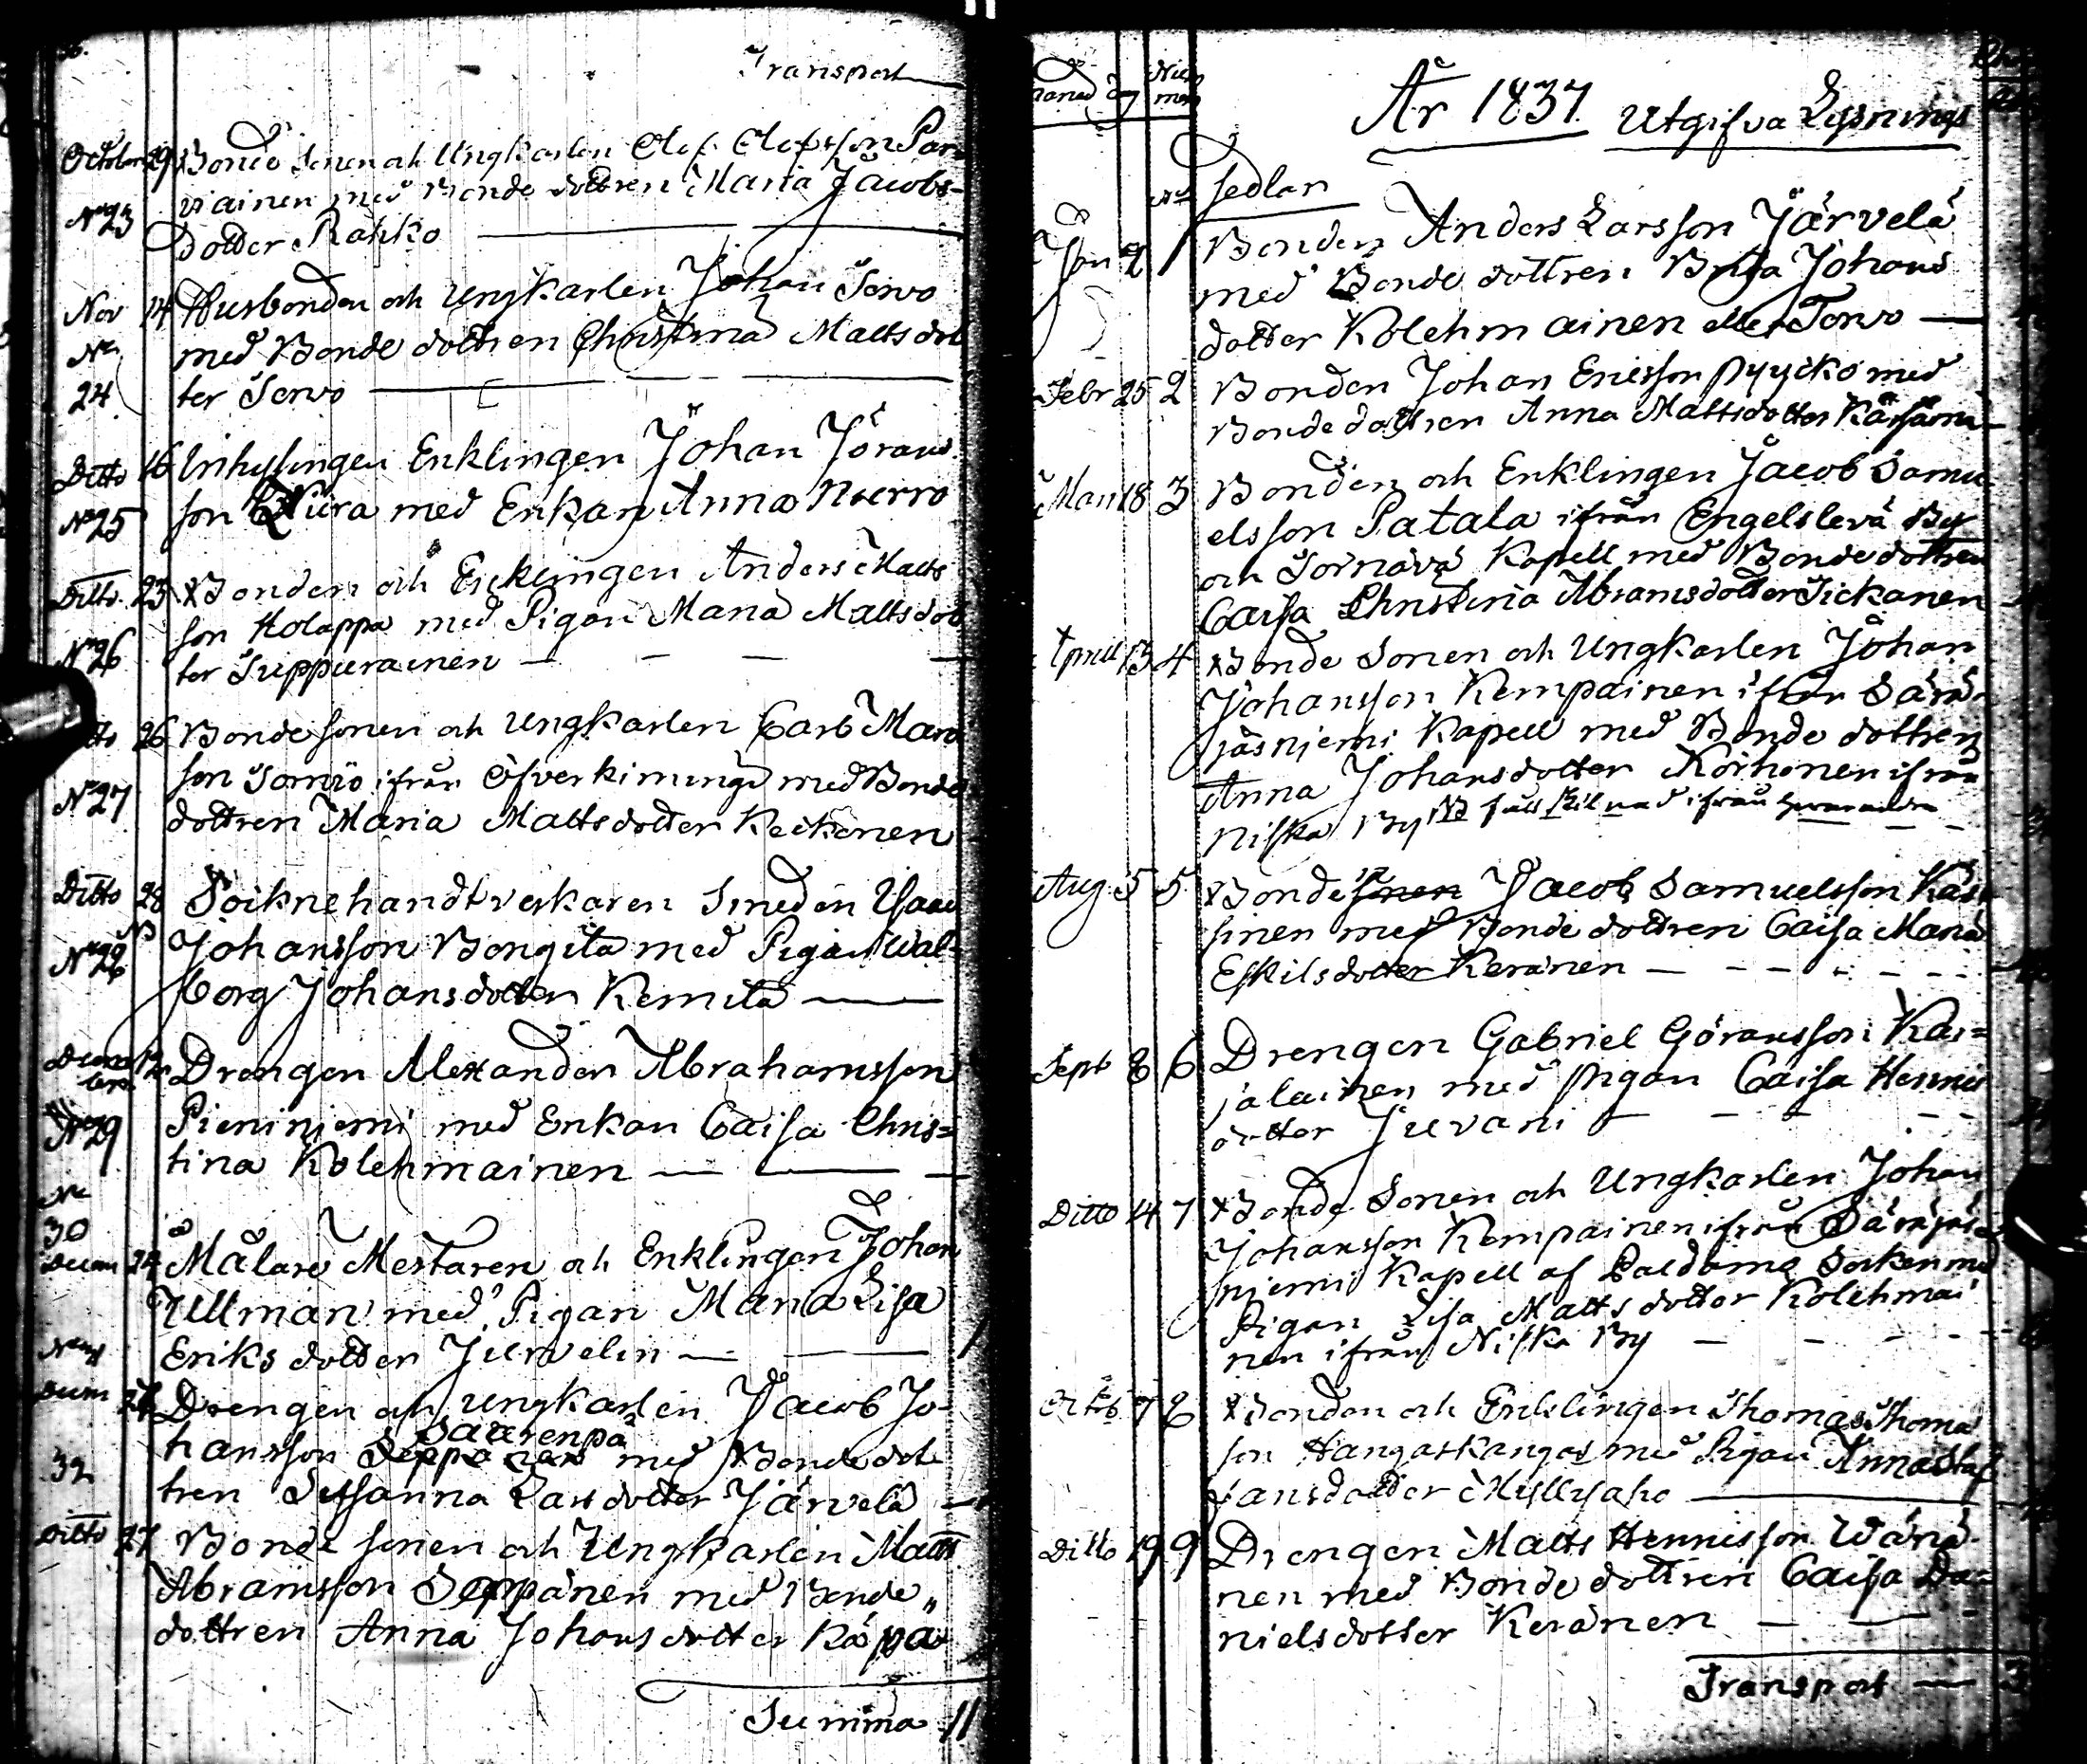 Transport
October 29 Bonde Sonen och Ungkarlen Olof Olofsson Par=
No 23 viainen med Bonde dottren Maria Jacobs-
dotter Rahko
Nov 14 Husbonden och Ungkarlen Johan Servo
No med Bonde dottren Christina Matts dot
24 ter Servo
Ditto 16 Inhysingen Enklingen Johan Jörans
No 25 son Kiura med Enkan Anna
Ditto 23 Bonden och Enklingen Anders Matts
son Holappa med Pigan Maria Mattsdot
No 26 ter Suppurainen
26 Bonde sonen och Ungkarlen Carl
No 27 son ifrån Öfverkiminge med Bonde
dottren Maria Mattsdotter Keckonen
Ditto 28 Sockne handtverkaren Smeden Isaac
No 28 Johansson Bongita med Pigan Wal=
borg Johansdotter Kemila
Decem
bris 12 Drengen Alexander Abrahamsson
No 29 Pieniniemi med Enkan Caisa Chris=
tina Kolehmainen
No
30
Decem 24 Målare Mestaren och Enklingen Johan
Ullman med Pigan Maria Lisa
Eriks dotter Junelin
Decem Drengen och Ungkarlen Jacob Jo-
Saarenpä
32 hansson med Bonde dot
tren Susanna Larsdotter Järvelä
Ditto 27 Bonde sonen och Ungkarlen Matts
Abramsson Seppänen med Bonde
dottren Anna Johans dotter Kåpa
Summa 11
År 1837. Utgifva Lysnings
Månad Dag Num
mer
No Sedlar
Jan 9 1 Bonden Anders Larsson Järvelä
med Bonde dottren Brita Johans
dotter Kolehmainen eller Torvo
Febr 25 2 Bonden Johan Ericsson Pyykkö med
Bonde dottren Anna Mattsdotter
Mars 18 3 Bonden och Enklingen Jacob Samu
elsson Patala ifrån Engelslevä By
och Sornävä Kapell med Bonde dottren
Caisa Christina Abramsdotter Tickanen
April 13 4 Bonde Sonen och Ungkarlen Johan
Johansson Kempainen ifrån Säräi=
jäsniemi Kapell med Bonde dottren
Anna Johansdotter Korhonen ifrån
Niska By NB full skilnad ifrån hwarandra
Aug. 5 5 Bonde sonen Jacob Samuelsson Käs=
sinen med Bonde dottren Caisa Maria
Eskilsdotter Keränen
Sept 8 6 Drengen Gabriel Göransson Kar=
jalainen med Pigan Caisa Hennis
dotter Juvani
Ditto 14 7 Bonde Sonen och Ungkarlen Johan
Johansson Kempainen ifrån Säräijäs=
niemi Kapell af Paldamo Socken med
Pigan Lisa Matts dotter Kolehmai
nen ifrån Niska By
Octob 7 8 Bonden och Enklingen Thomas Thomas
son Hangaskangas med Pigan Anna Staf
fansdotter Myllyaho
Ditto 19 9 Drengen Matts Hennisson Wänä-
nen med Bonde dottren Caisa Da=
nielsdotter Keränen
Transport